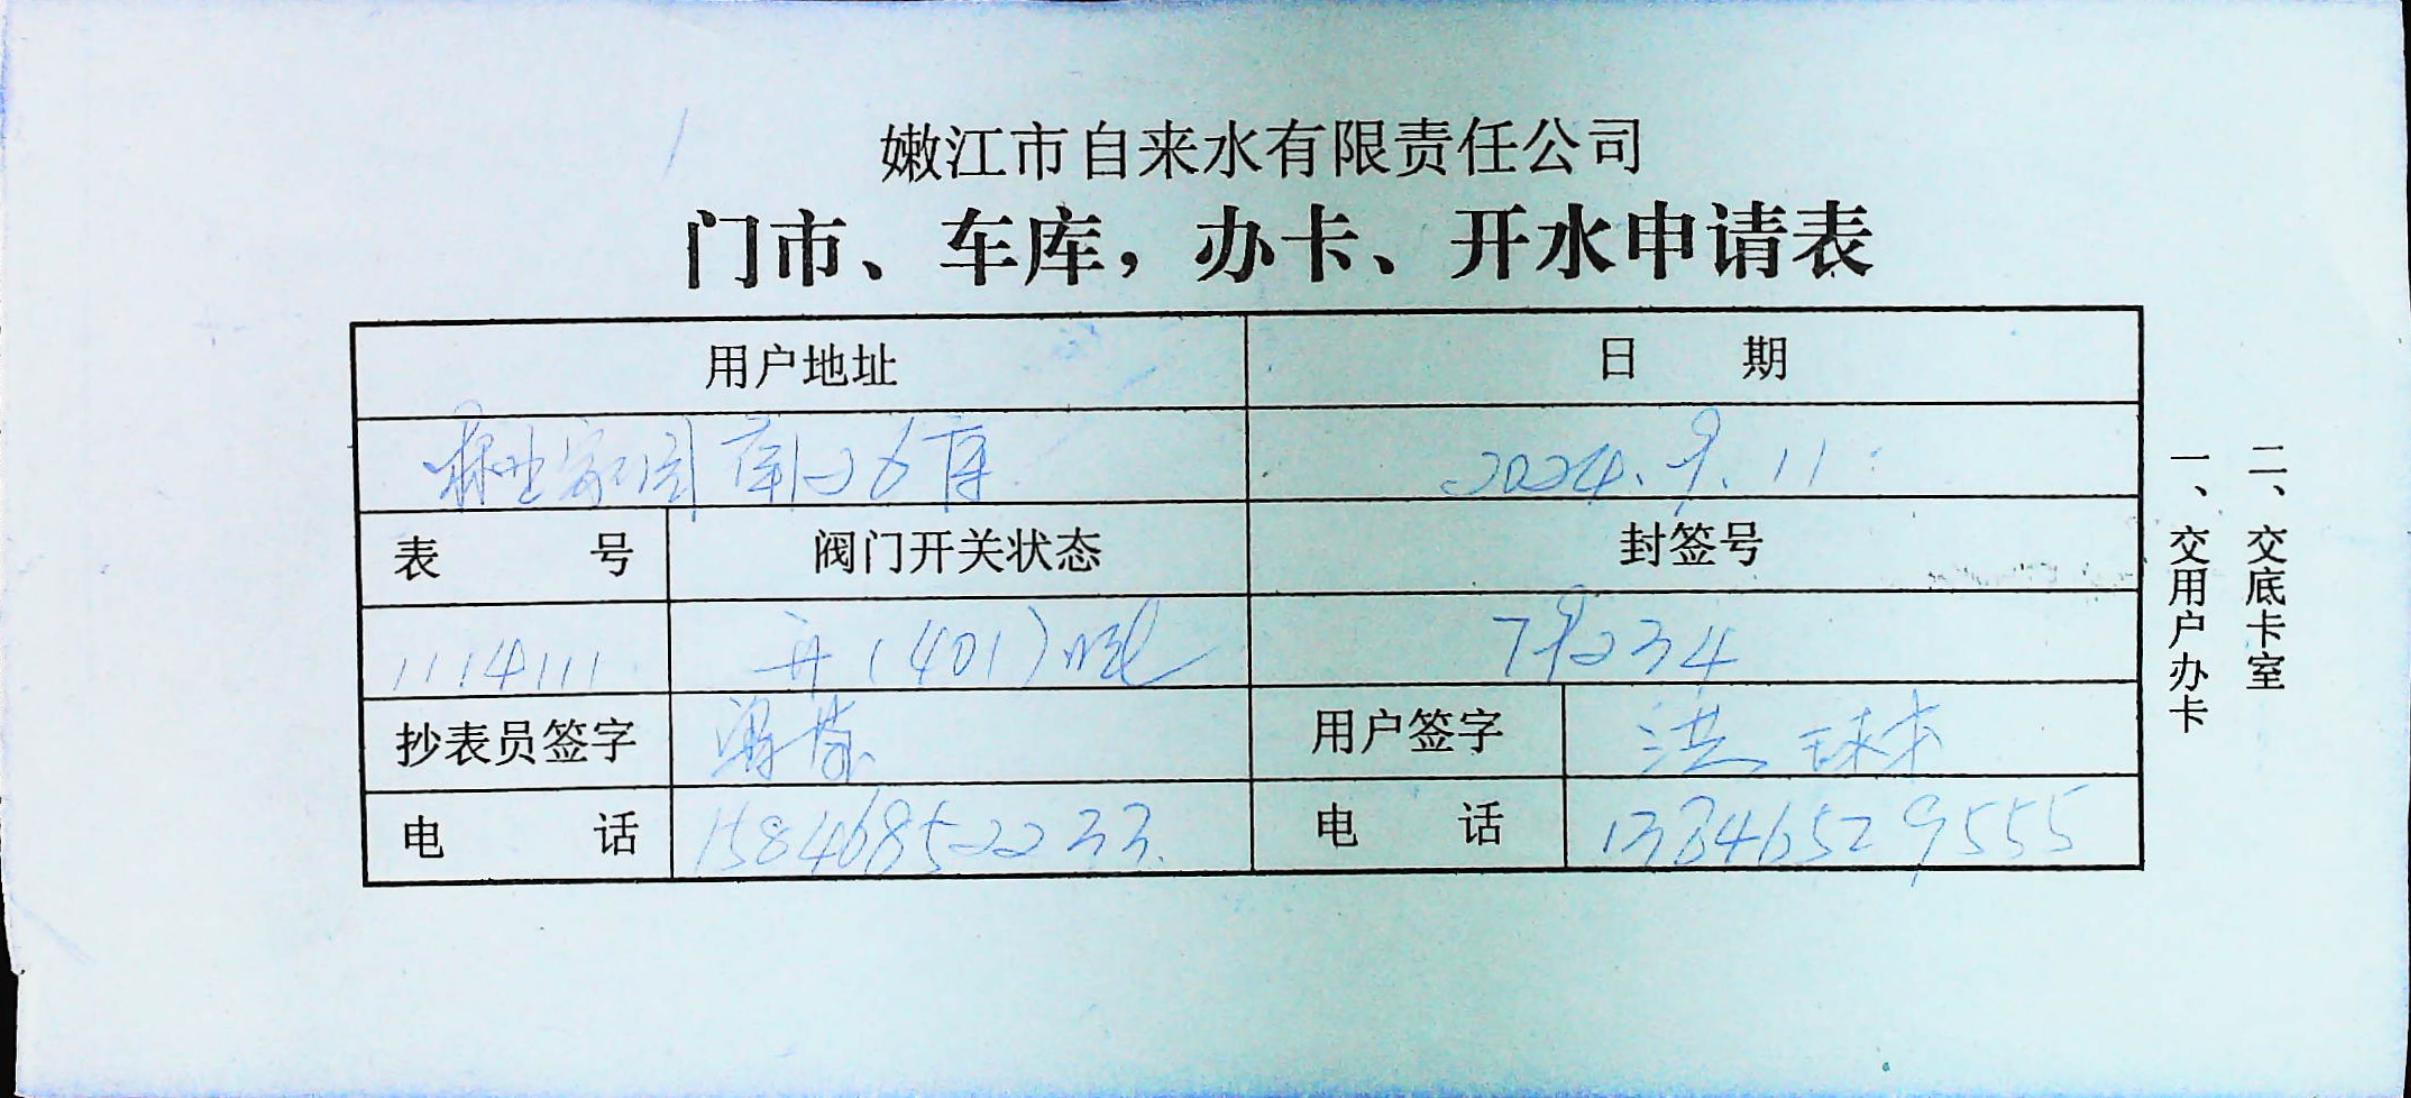 嫩江市自来水有限责任公司
门市、车库，办卡、开水申请表
用户地址 日 期
家园 库 26库 2024.9.11
表 号 阀门开关状态 封签号
1114111 开(401)吨 79234
抄表员签字 用户签字 洪球才
电 话 15846852233. 电 话 13846529555
一、交用户办卡
二、交底卡室